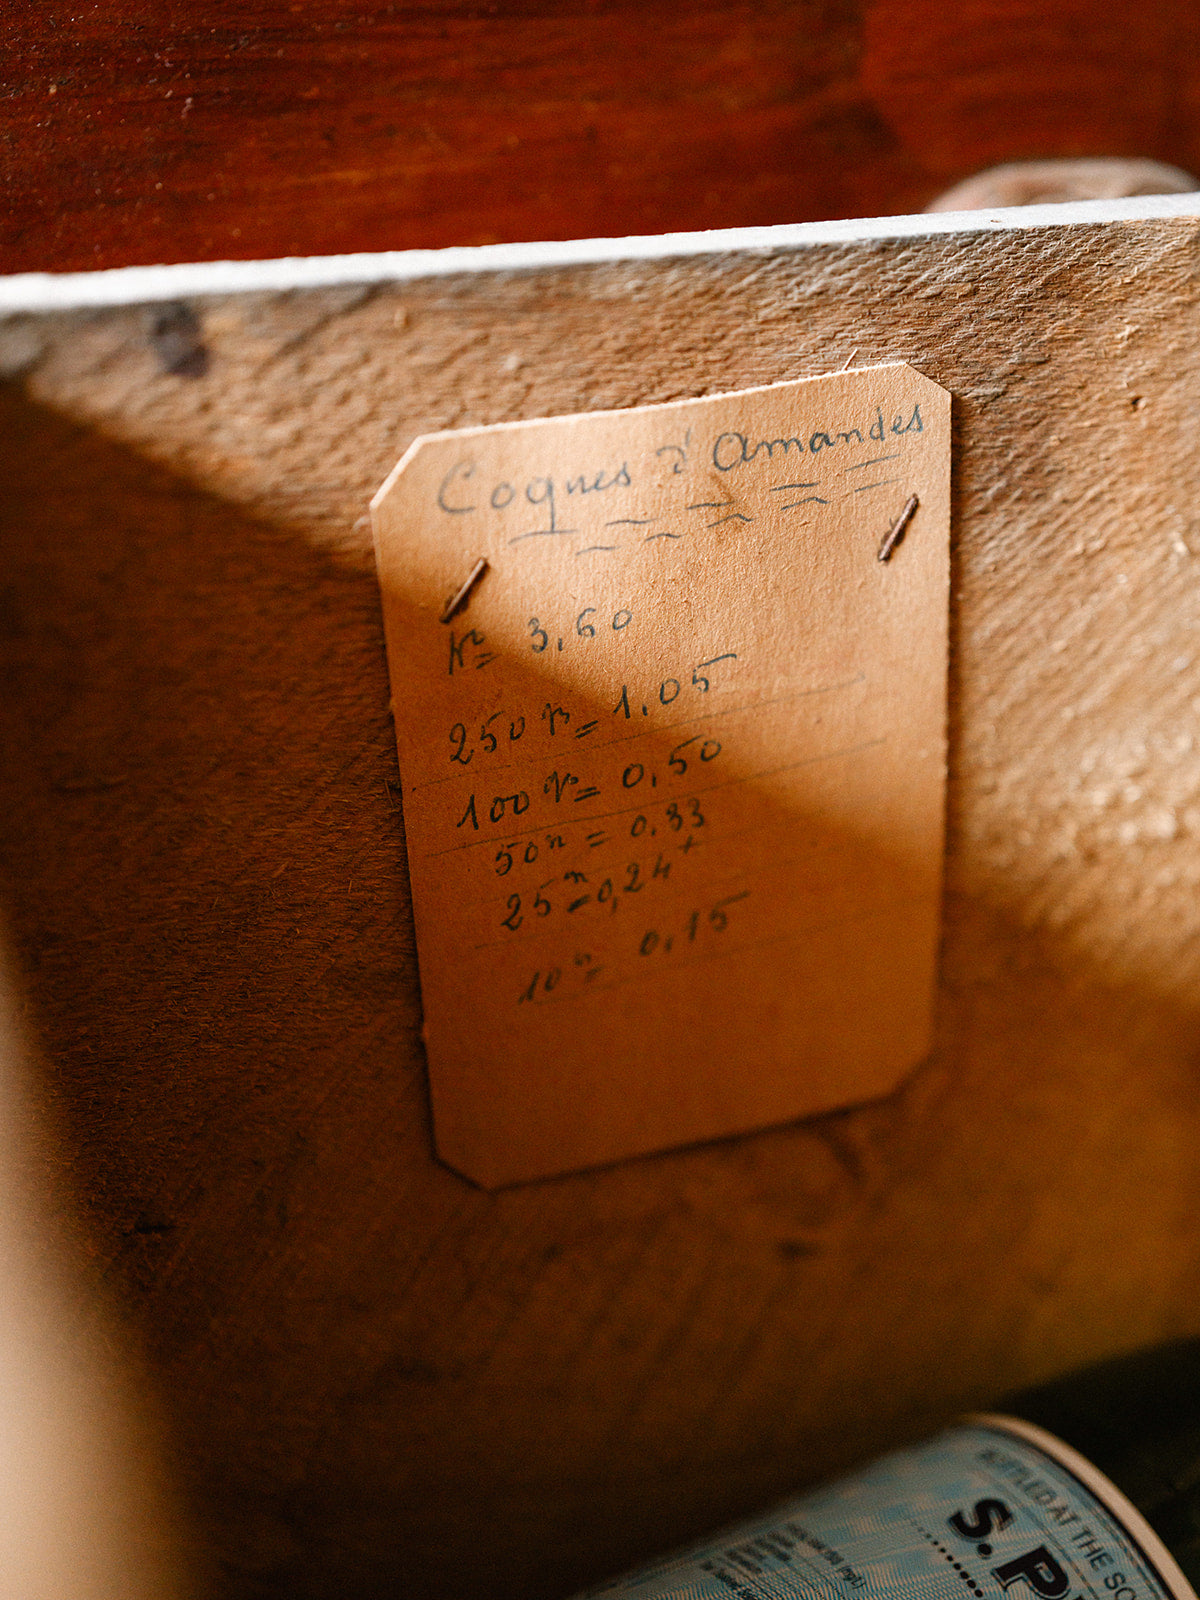 Coques d'Amandes
Kº = 3,60
250 gr = 1.05
100 gr = 0,50
50 gr = 0,33
25 gr = 0,24
10 gr = 0,15
BOTTLED AT THE
S. P